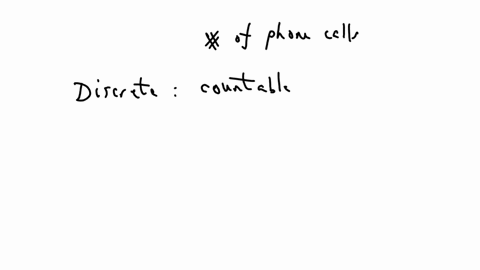 # of phone calls
Discrete : countable